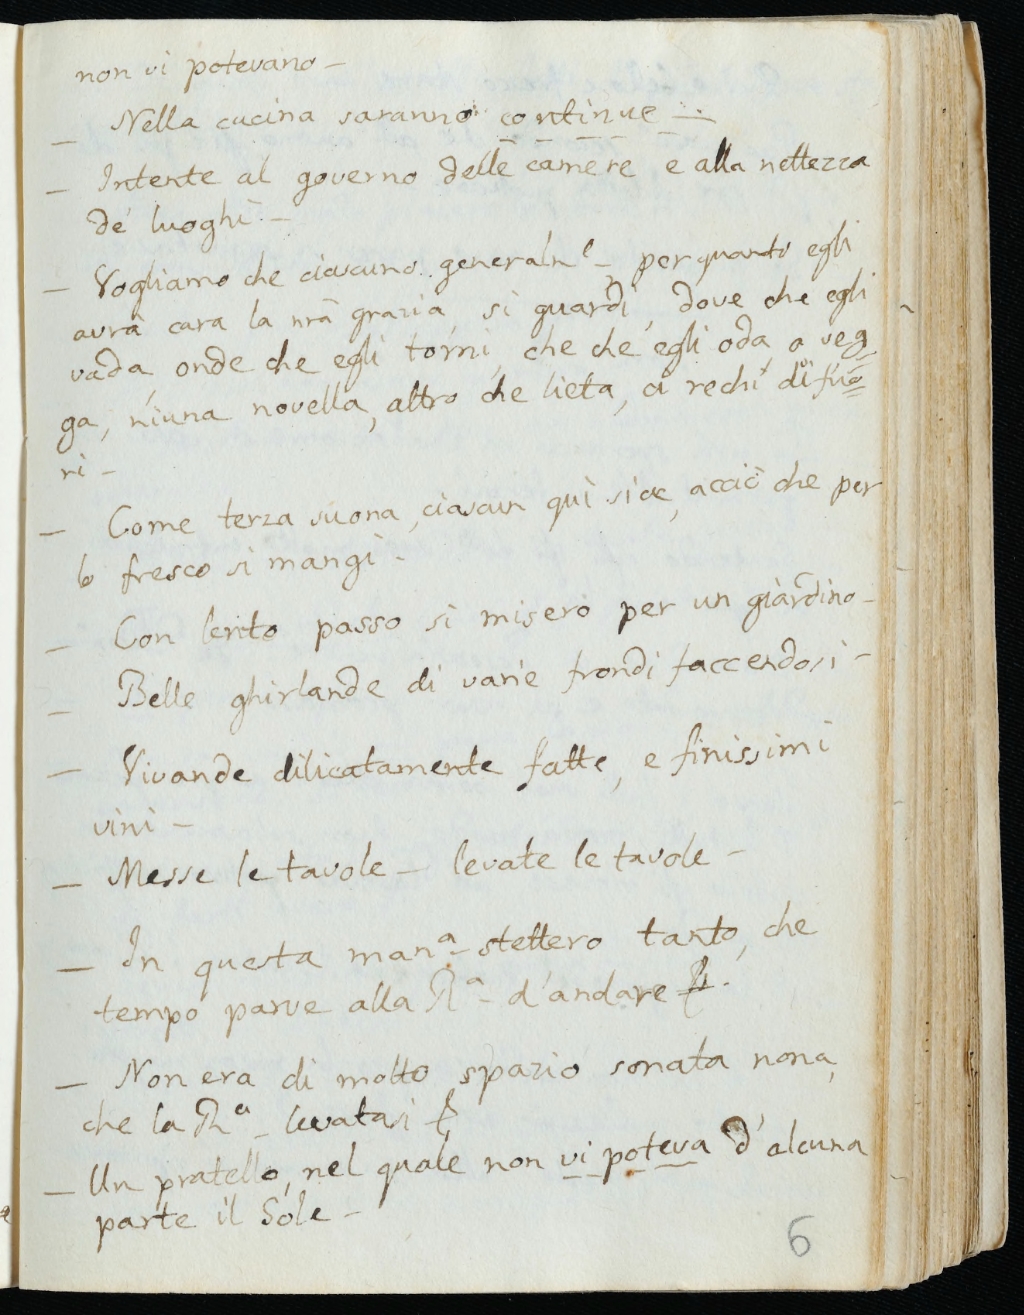 non vi potevano –
– Nella cucina saranno continue –
– Intente al governo delle camere e alla nettezza
de' luoghi –
– Vogliamo che ciascuno generalne – per quanto egli
avrà cara la nrã grazia si guardi, dove che egli
vada, onde che egli torni, che che egli oda o veg
ga, niuna novella, altro che lieta, ci rechi di fuo=
ri –
– Come terza suona, ciascun quì sia, acciò che per
lo fresco si mangi –
– Con lento passo si misero per un giardino –
– Belle ghirlande di varie frondi faccendosi –
– Vivande dilicatamente fatte, e finissimi
vini –
– Messe le tavole – levate le tavole –
– In questa mana – stettero tanto, che
tempo parve alla Ra – d'andare
– Non era di molto spazio sonata nona,
che la Ra – levatasi
– Un pratello, nel quale non vi poteva d'alcuna
parte il Sole –
6